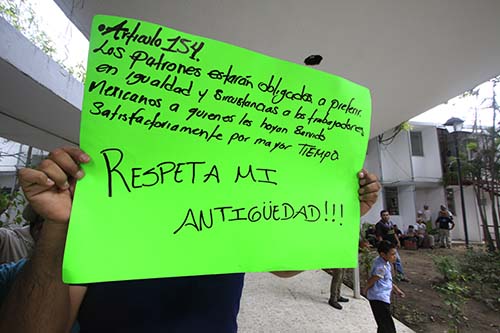 • Articulo 154.
Los Patrones estarán obligados a preferir
en igualdad y sircustancias a los trabajadores,
Mexicanos a quienes les hayan Servido
Satisfactoriamente por mayor TIEMPO
RESPETA MI
ANTIGÜEDAD!!!